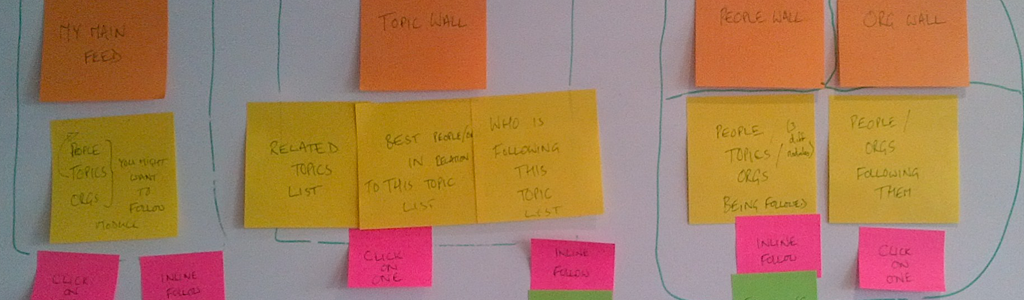 MY MAIN
FEED
TOPIC WALL
PEOPLE WALL
ORG WALL
PEOPLE
TOPICS
ORGS
YOU MIGHT
WANT
TO
FOLLOW
MODULE
RELATED
TOPICS
LIST
BEST PEOPLE/
IN RELATION
TO THIS TOPIC
LIST
WHO IS
FOLLOWING
THIS
TOPIC
LIST
PEOPLE /
TOPICS /
ORGS
BEING FOLLOWED
PEOPLE /
ORGS
FOLLOWING
THEM
CLICK
ON
INLINE
FOLLOW
CLICK
ON
ONE
INLINE
FOLLOW
INLINE
FOLLOW
CLICK
ON
ONE